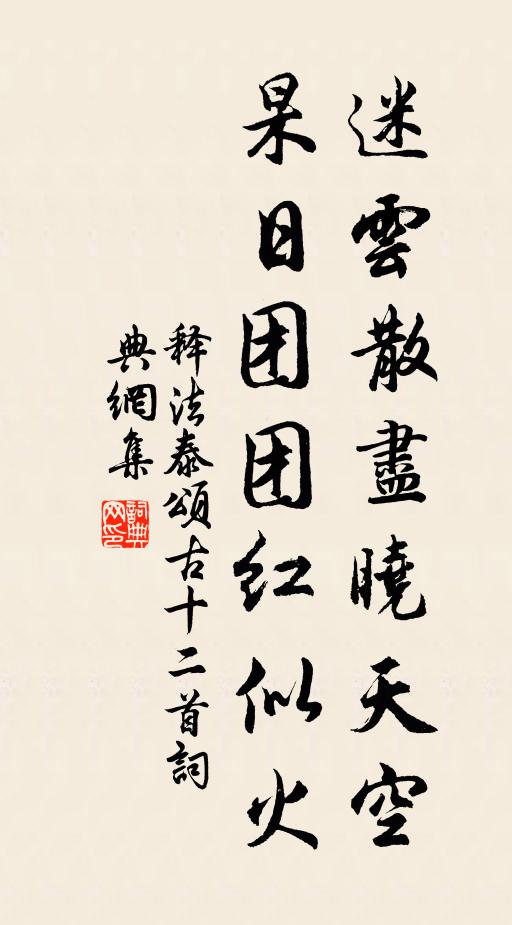 迷雲散盡曉天空
杲日团团红似火
释法泰頌古十二首詞
典網集
詞典網印